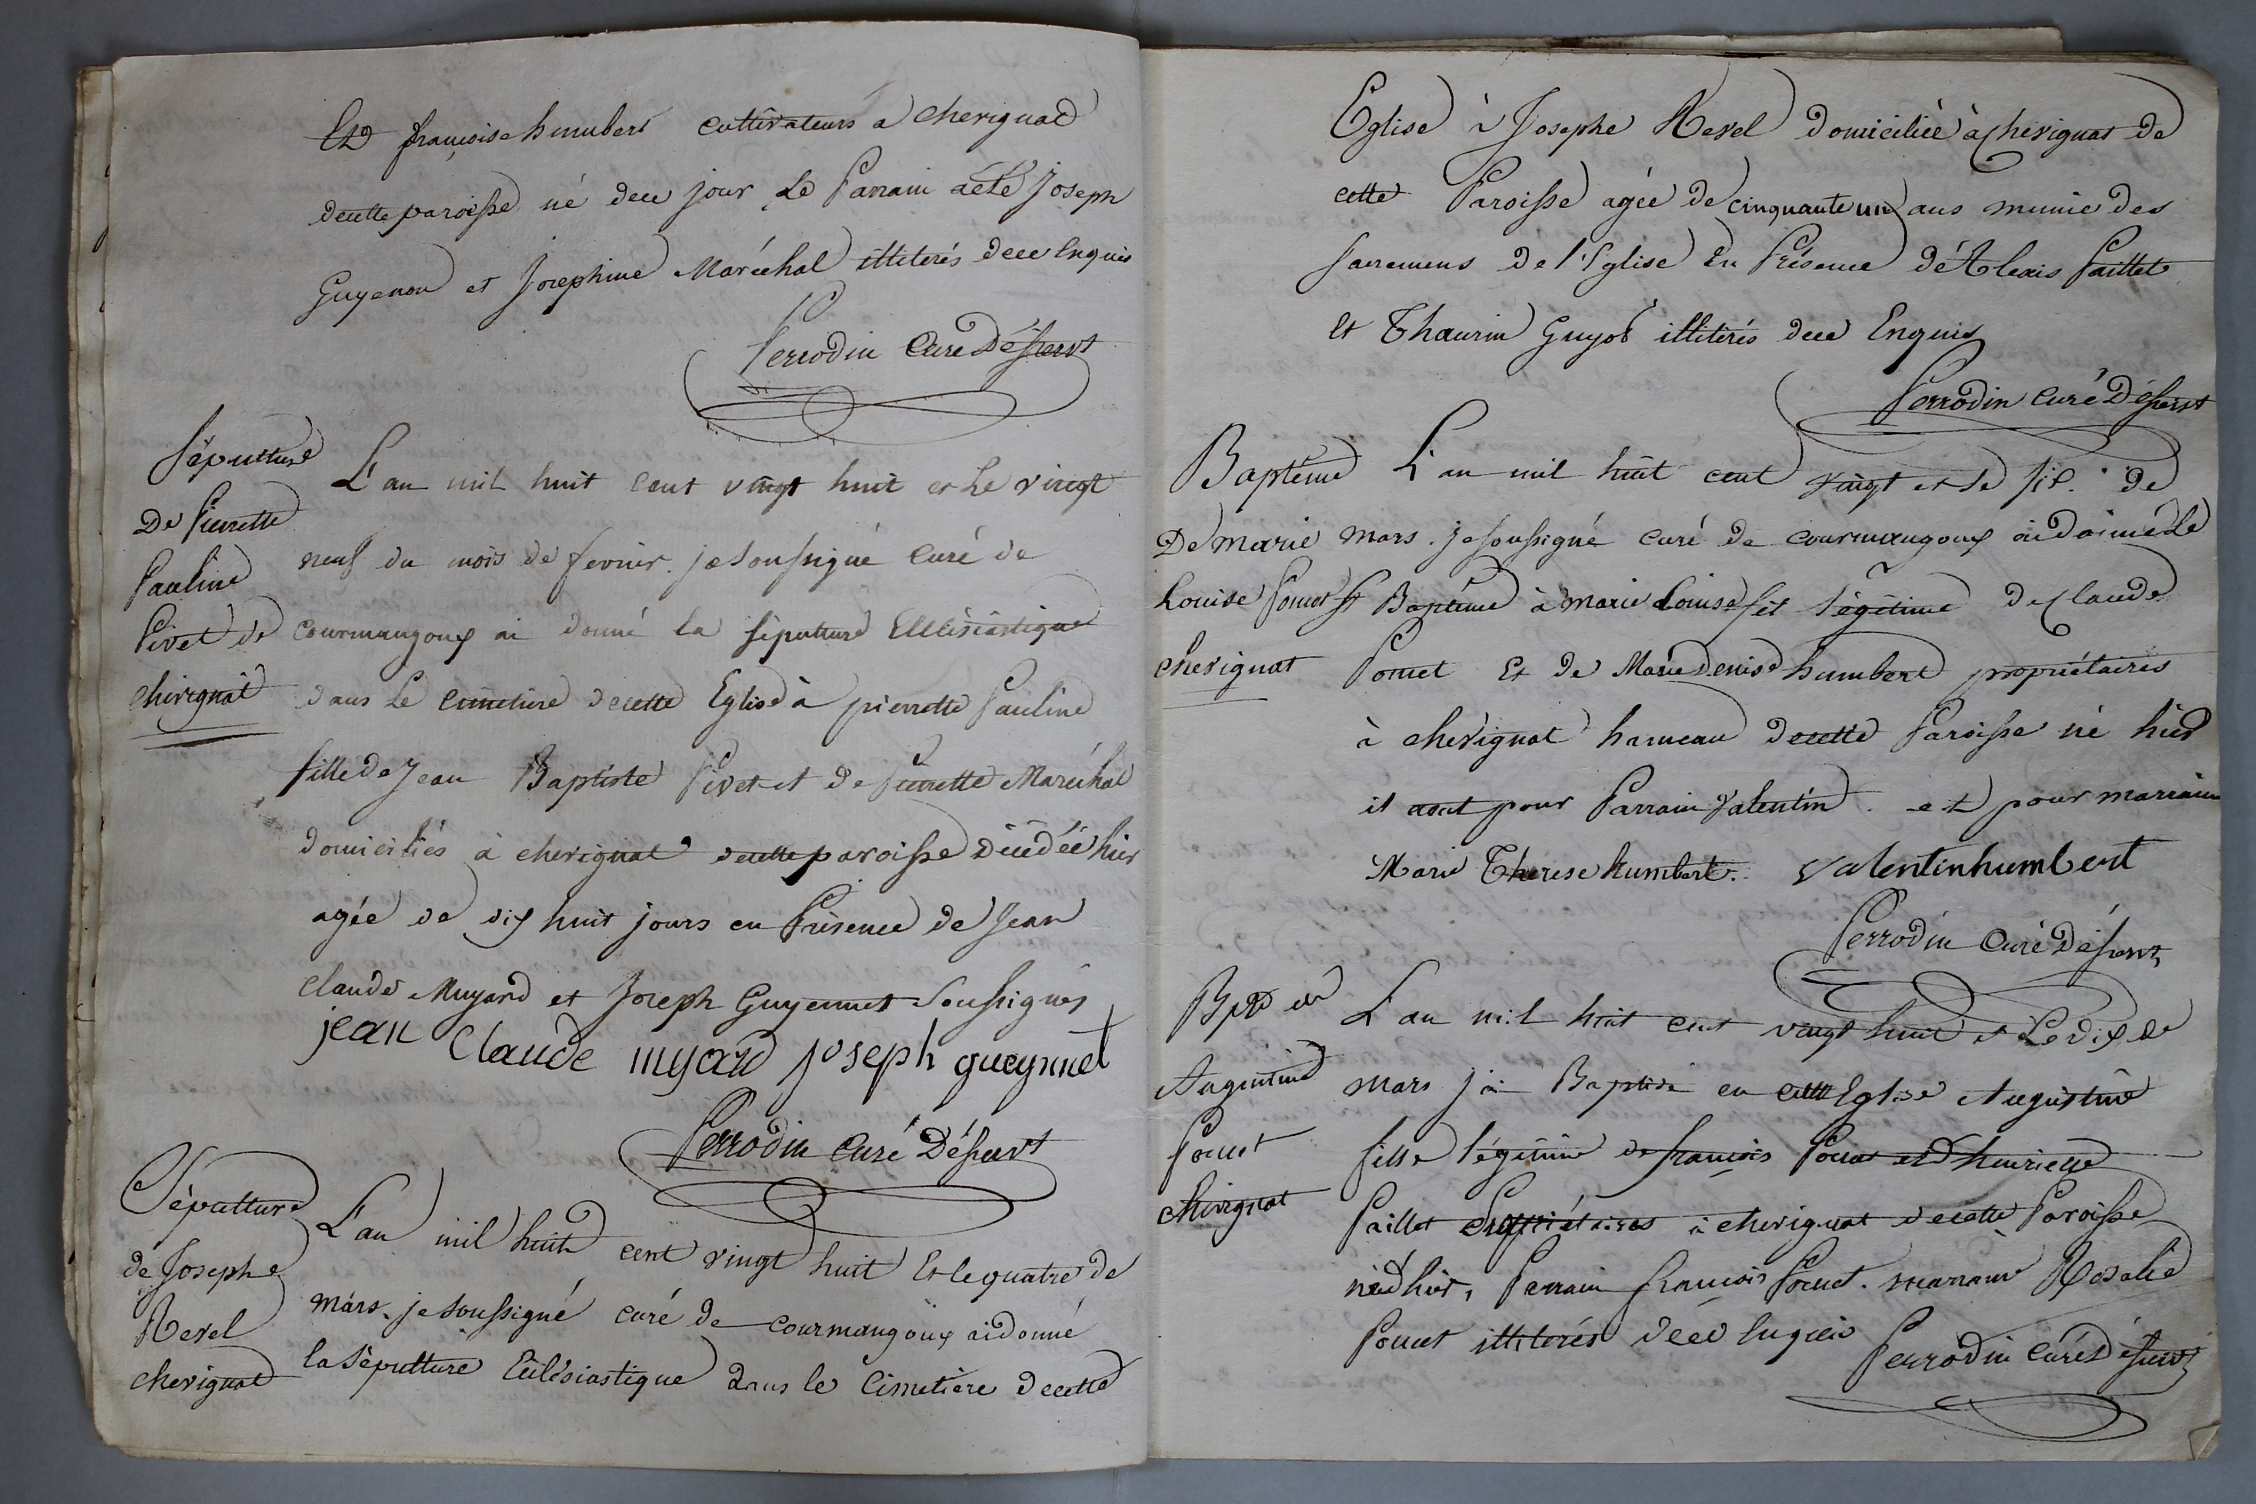 Et françoise humbert cultivateurs a cherignad
decette paroisse né dece jour Le Parrain aété Joseph
Guyenon et Josephine Maréchal illiterés dece Enquis
Perrodin Curé Déservt
Sépulture
De Pierrette
Pauline
Pivet de
chirignat
L'an mil huit cent vingt huit et Le vingt
neuf du mois de fevrier. je soussigné Curé de
courmangoux ai donné la sépulture Ecclésiastique
dans Le cimetiere decette Eglise à pierrette Pauline
fille de Jean Baptiste Pivet et de Pierrette Maréchal
domiciliés à cherignat decette paroisse Décédée hier
agée de dix huit jours en Présence de Jean
Claude Muyard et Joseph Guyennet Soussignés
jean Claude muyard joseph gueynnet
Perrodin Curé Déservt
Sépulture
de Josephe
Revel
cherignat
L'an mil huit cent vingt huit Et le quatre de
mars. je soussigné curé de courmangoux ai donné
la Sépulture Eclésiastique dans le Cimetière decette
Eglise à Josephe Revel domiciliée à cherignat de
cette Paroisse agée de cinquante un ans munie des
sacremens de l'Eglise En Présence d'Alexis Paillet
Et Thaurin Guyot illitérés dece Enquis
Perrodin Curé Déservt
Baptême
De marie
Louise Pomet
cherignat
L'an mil huit cent vingt et le six. de
mars. je soussigné curé de courmangoux ai donné Le
St Baptême à marie Louise fil légitime de Claude
Pomet Et de Marie Denise humbert propriétaires
à cherignat hameau decette Paroisse né hier
il aeut pour Parrain Valentin . et pour marraine
Marie Therese humbert. Valentin humbert
Perrodin Curé Déservt
Bpt
Augustine
Pomet
chirignat
L'an mil huit cent vingt huit et Le dix de
mars j'ai Baptisé en cette Eglise Augustine
fille légitime de françois Pomet et d'henriette
Paillet Propriétaires à cherignat decette Paroisse
née hier, Parrain françois Pomet. marraine Rosalie
Pomet illiterés dece Enquis Perrodin curé Déservt